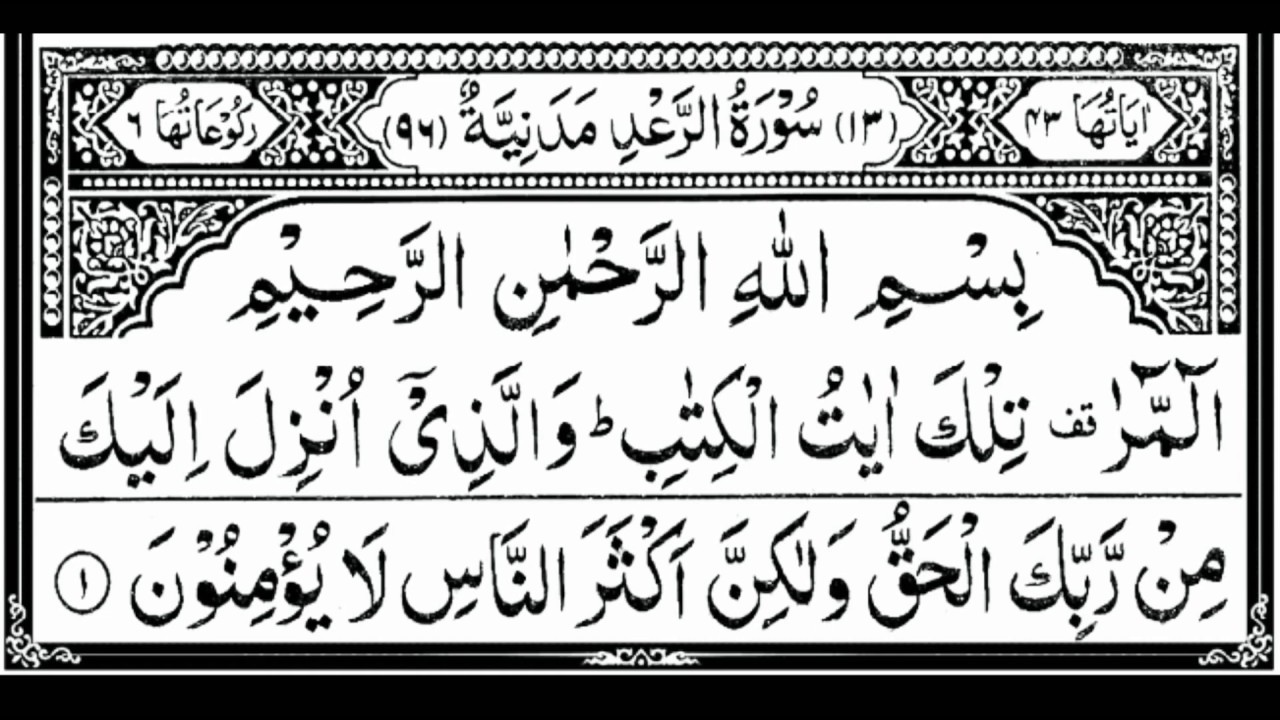 اٰيَاتُهَا ۴۳ (۱۳) سُوْرَةُ الرَّعْدِ مَدَنِيَّةٌ (۹۶) رَكُوْعَاتُهَا ۶
بِسْمِ اللّٰهِ الرَّحْمٰنِ الرَّحِيْمِ
الٓمّٓرٰ قف تِلْكَ اٰيٰتُ الْكِتٰبِ ؕ وَالَّذِيْٓ اُنْزِلَ اِلَيْكَ
مِنْ رَّبِّكَ الْحَقُّ وَلٰكِنَّ اَكْثَرَ النَّاسِ لَا يُؤْمِنُوْنَ ۱